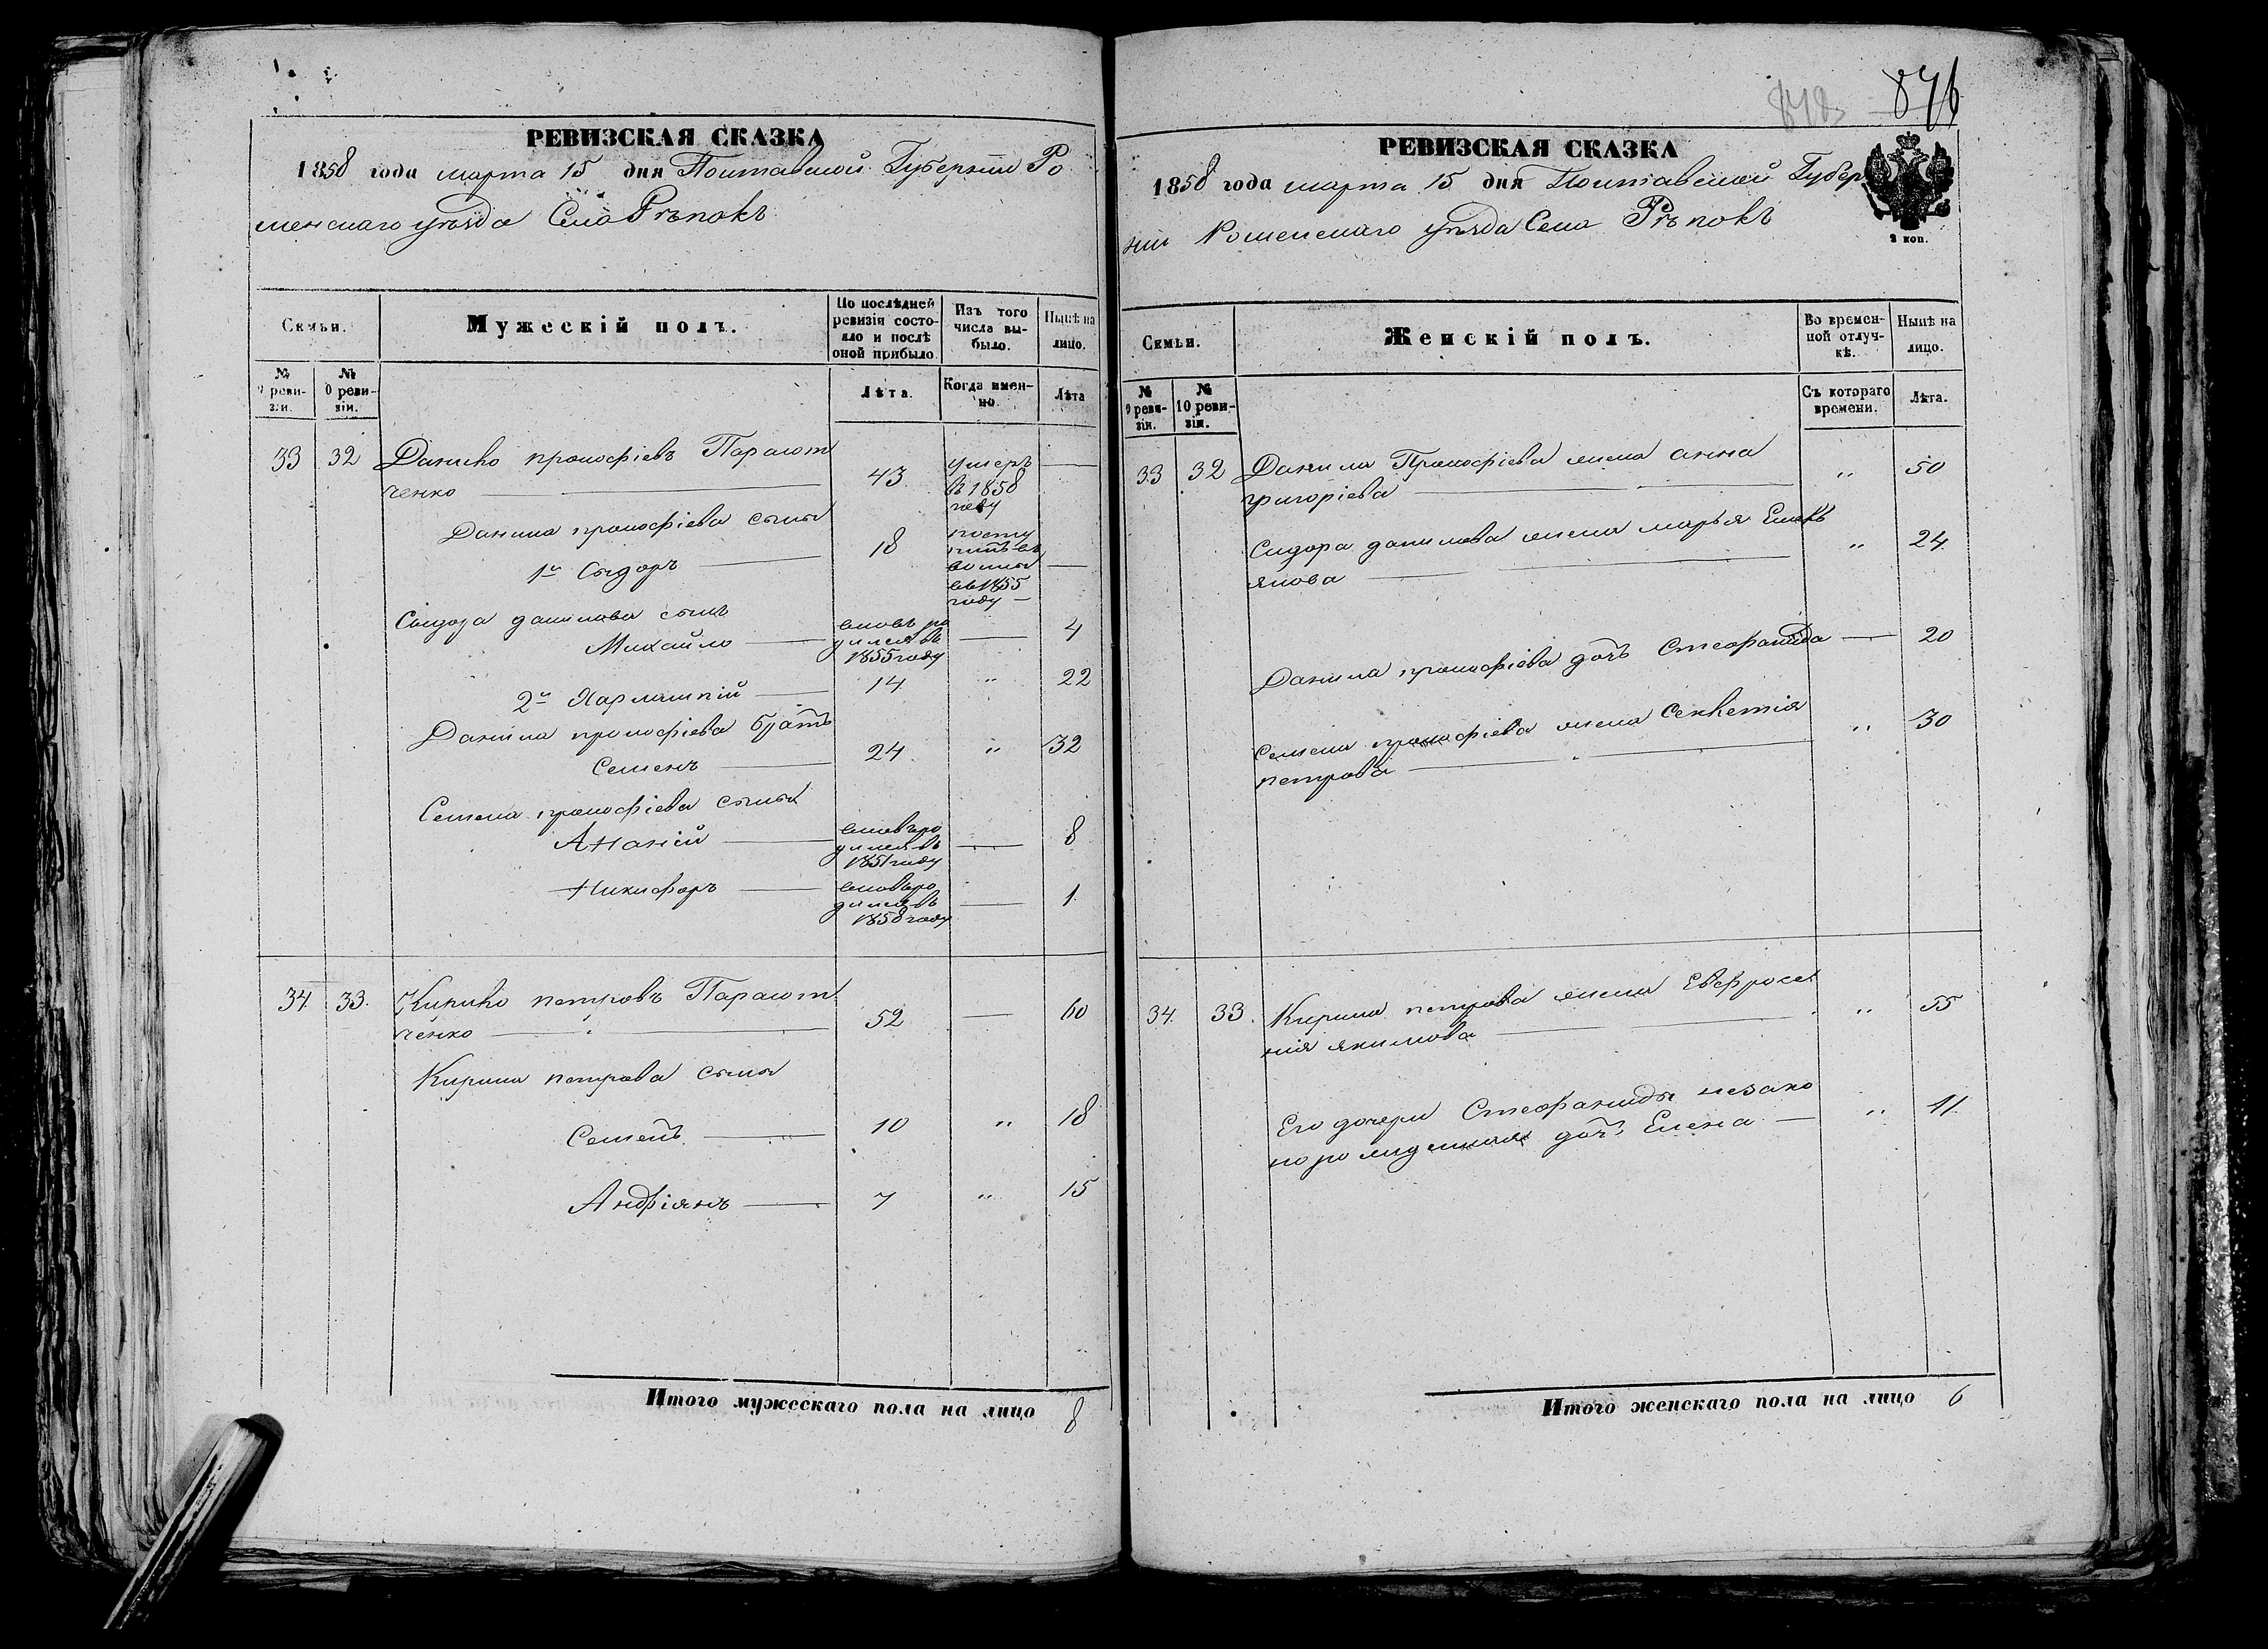 РЕВИЗСКАЯ СКАЗКА
1858 года марта 15 дня Полтавской Губернии Ро
менскаго уѣзда Села Рѣпокъ
Семьи.
Мужескій полъ.
По послѣдней ревизіи состояло и послѣ оной прибыло.
Изъ того числа выбыло.
Нынѣ на лицо.
№ 9 ревизіи.
№ 10 ревизіи.
Лѣта.
Когда именно.
Лѣта
33 32 Данило прокофіевъ Парают
ченко 43 умеръ въ 1850 году
Данила прокофіева сыны
1й Сыдоръ 18 въ 1855 году
Сыдора данилова сынъ
Михайло вновь родился въ 1855 году 4
2й Харлампій 14 " 22
Данила прокофіева братъ
Семенъ 24 " 32
Семена прокофіева сыны
Ананій вновь родился въ 1851 году 8
Никифоръ вновь родился въ 1858 году 1
34 33. Кирило петровъ Парают
ченко 52 60
Кирила петрова сыны
Семенъ 10 " 18
Андріянъ 7 " 15
Итого мужескаго пола на лицо 8
876
РЕВИЗСКАЯ СКАЗКА
1858 года марта 15 дня Полтавской Губер
ніи Роменскаго уѣзда Села Рѣпокъ
2 коп.
Семьи.
Женскій полъ.
Во временной отлучкѣ.
Нынѣ на лицо.
№ 9 ревизіи.
№ 10 ревизіи.
Съ котораго времени.
Лѣта.
33 32 Данила Прокофіева жена анна
григоріева " 50
Сидора данилова жена марья Емель
янова " 24
Данила прокофіева дочь Стефанида 20
Семена прокофіева жена Секлетія
петрова " 30
34. 33. Кирила петрова жена Евфроси
нія якимова " 55
Его дочери Стефаниды незако
норожденная дочь Елена " 11.
Итого женскаго пола на лицо 6